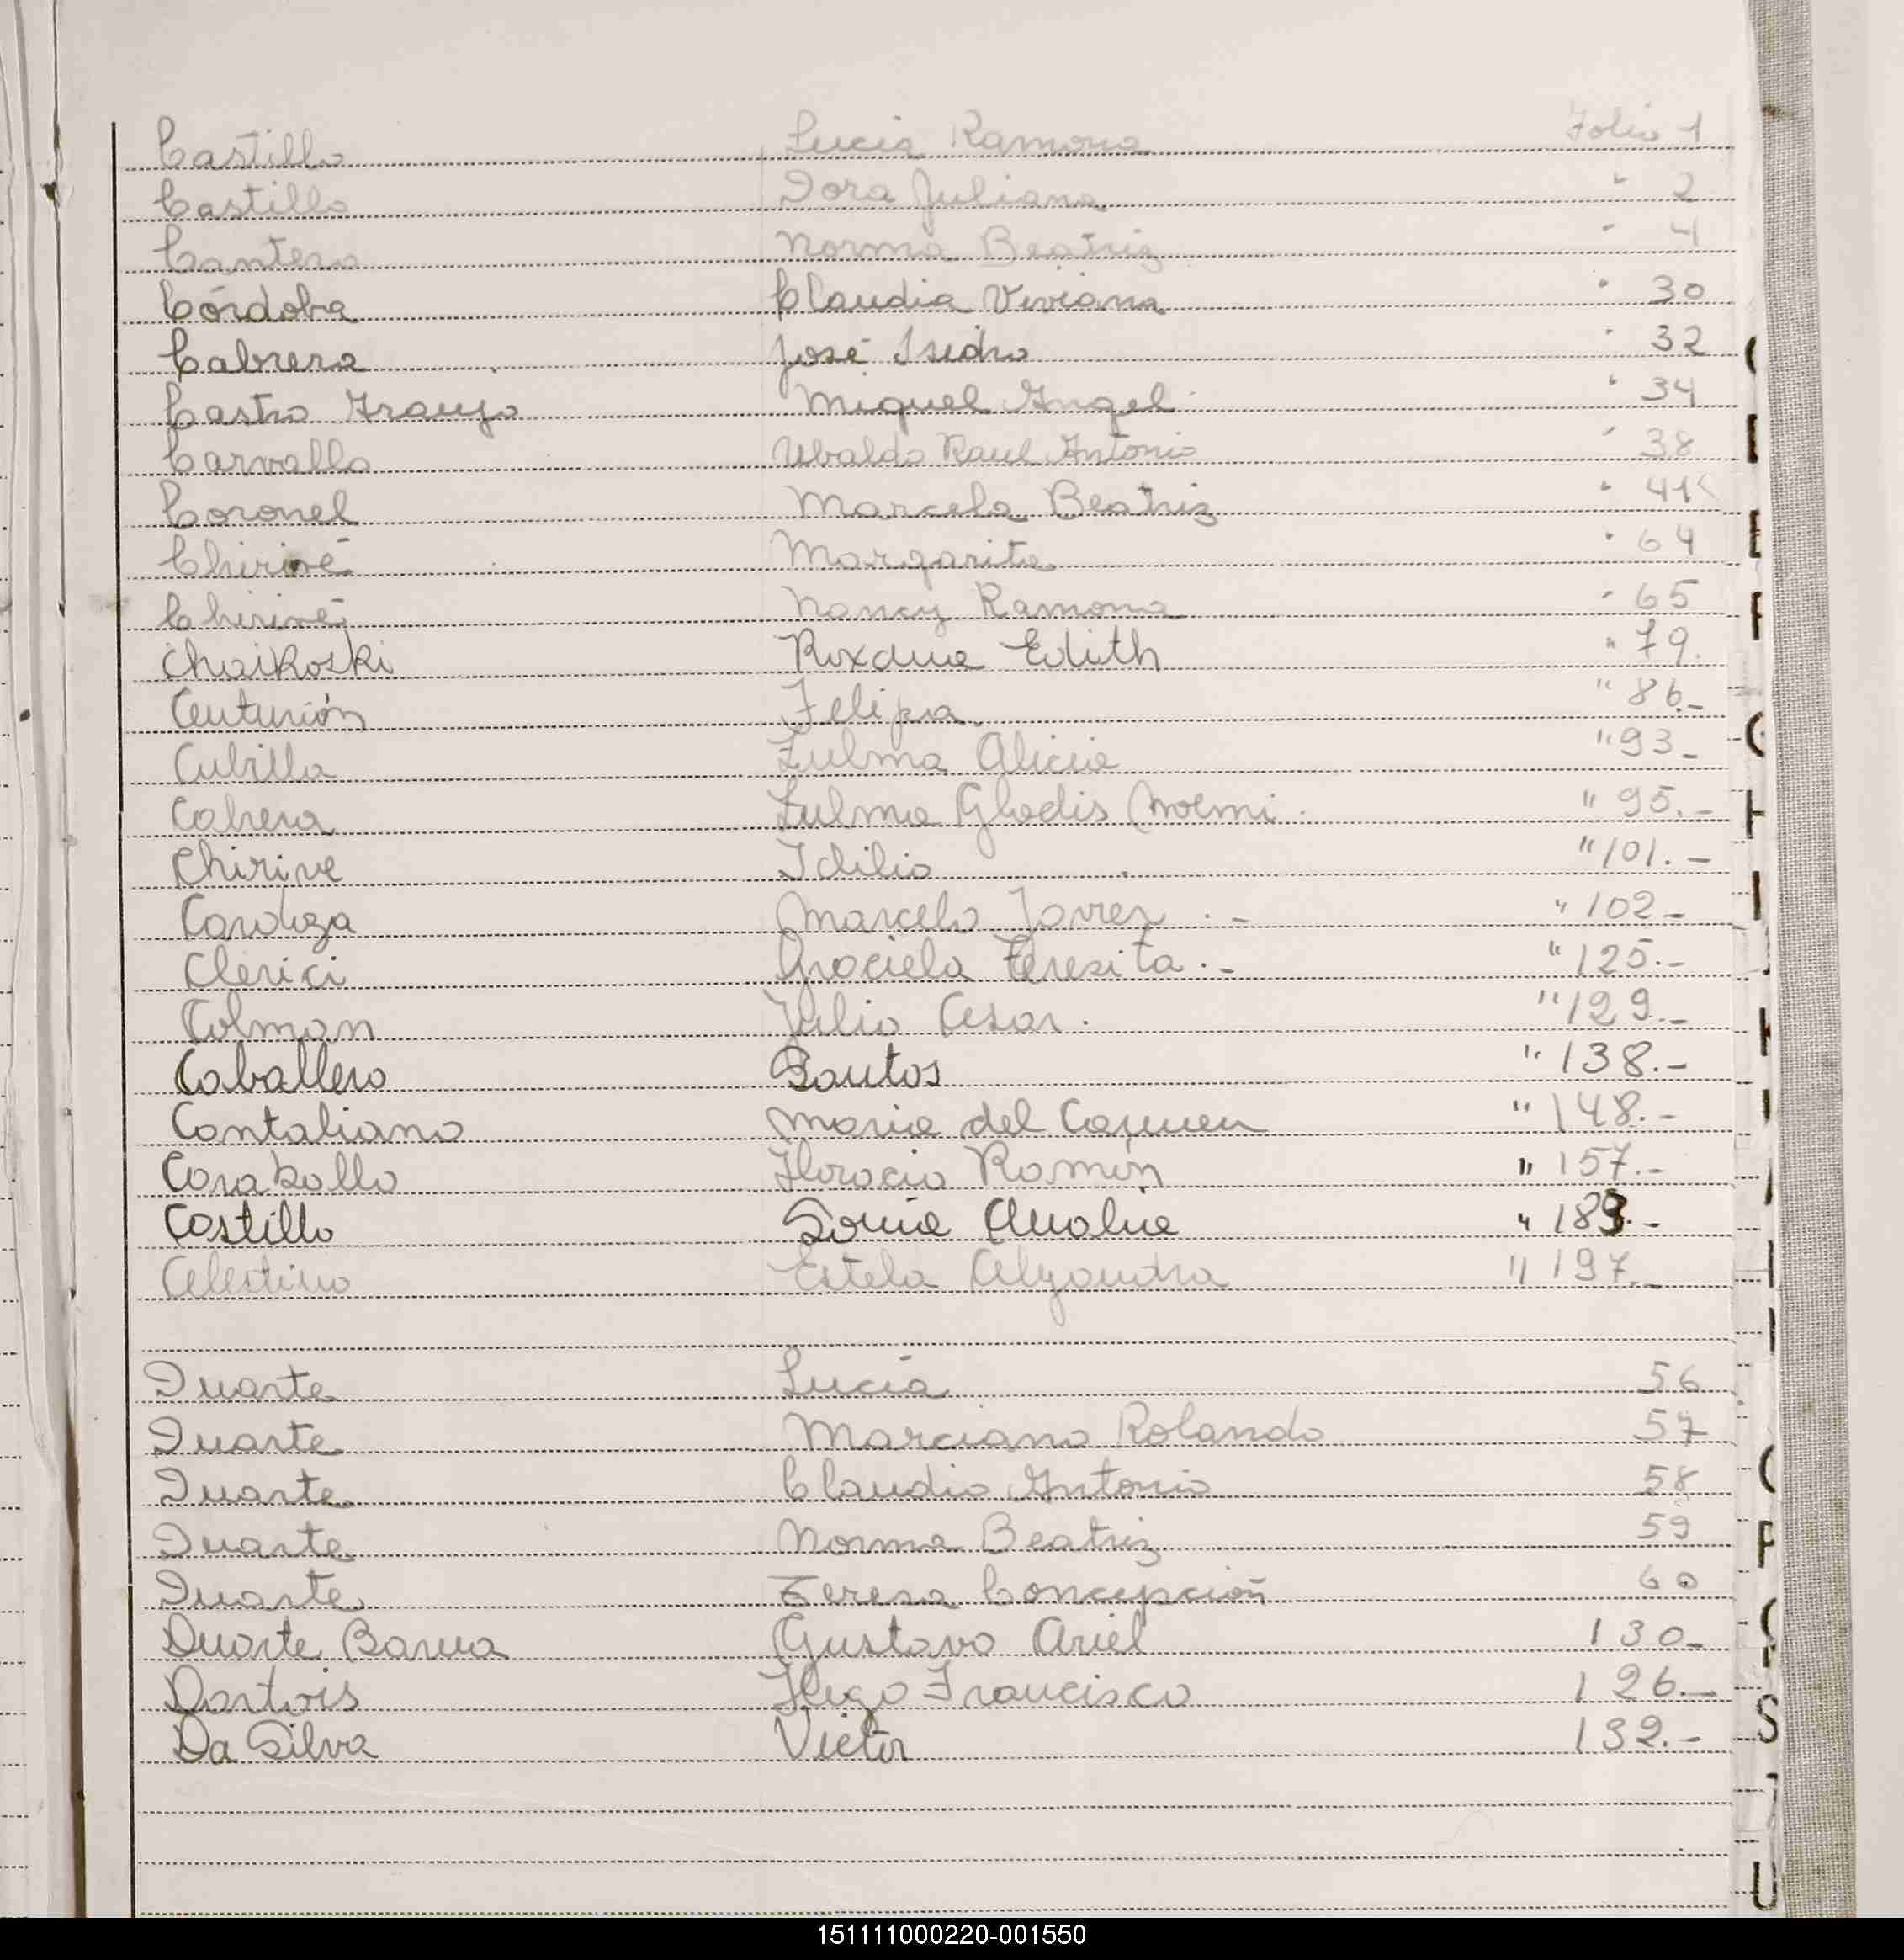 Castillo Lucia Ramona Folio 1
Castillo Dora Juliana " 2
Cantero Norma Beatriz " 4
Córdoba Claudia Viviana " 30
Cabrera José Isidro " 32
Castro Araujo Miguel Angel " 34
Carvallo Ubaldo Raul Antonio " 38
Coronel Marcela Beatriz " 41
Chirivé Margarita " 64
Chirivé Nancy Ramona " 65
Chaikoski Roxana Edith " 79.
Centurión Felipa " 86.-
Cubilla Zulma Alicia " 93-
Cabrera Zulma Gladis Noemi. " 95.-
Chirive Idilio " 101.-
Cardoza Marcelo Javier .- " 102-
Clerici Graciela Teresita.- " 125.-
Colman Julio Cesar. " 129.-
Caballero Santos " 138.-
Cantaliano Maria del Carmen " 148.-
Caraballo Horacio Ramón " 157.-
Castillo Sonia Analia " 183.-
Celestino Estela Alejandra " 197.-
Duarte Lucía 56
Duarte Marciano Rolando 57
Duarte Claudio Antonio 58
Duarte Norma Beatriz 59
Duarte Teresa Concepción 60
Duarte Barua Gustavo Ariel 130-
Dartois Hugo Francisco 126.-
Da Silva Victor 132.-
151111000220-001550